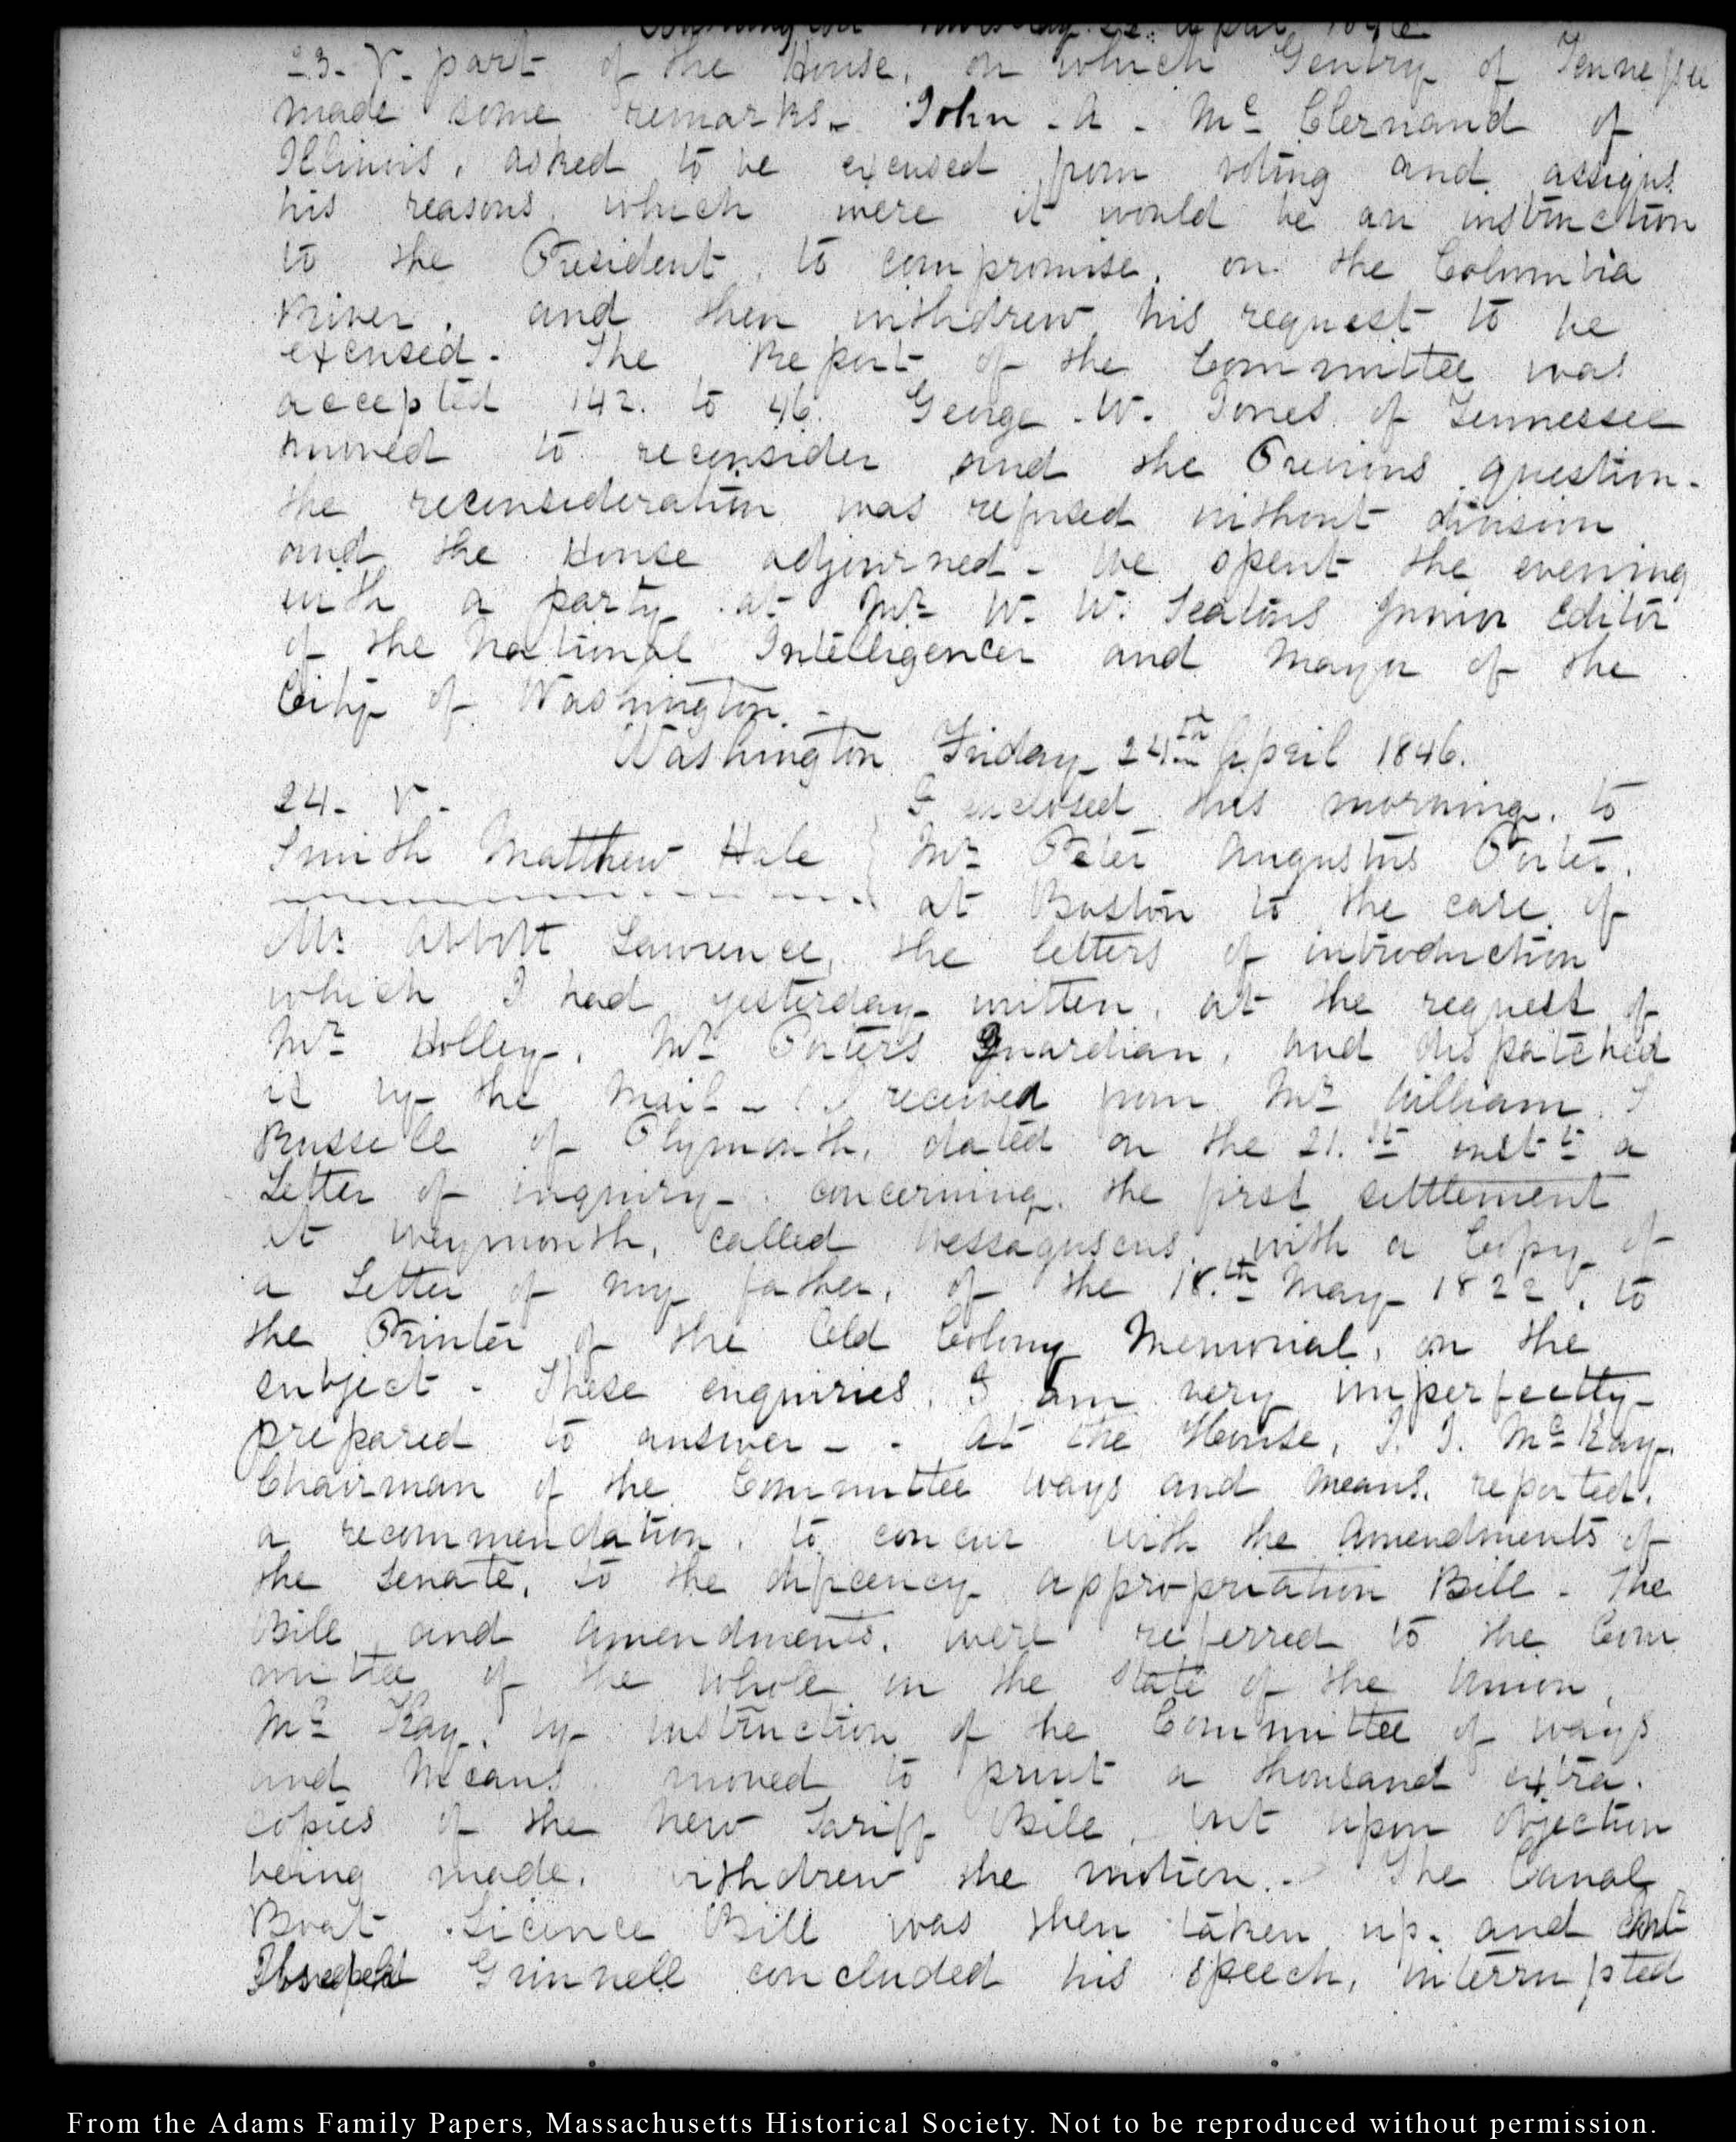 Washington Thursday 23. April 1846
23. V. part of the House, on which Gentry of Tennessee
made some remarks. John. A. Mc Clernand of
Illinois, asked to be excused from voting and assigns
his reasons, which were it would be an instruction
to the President, to compromise, on the Columbia
River, and then withdrew his request to be
excused. The Report of the Committee was
accepted 142. to 46. George. W. Jones of Tennessee
moved to reconsider and the Previous question.
the reconsideration was refused without division
and the House adjourned. We spent the evening
with a party at Mr W. W. Seatons junior Editor
of the National Intelligencer and Mayor of the
City of Washington. -
Washington Friday 24th April 1846.
24. V. I enclosed this morning, to
Smith Matthew Hale } Mr Peter Augustus Porter,
at Boston to the care of
Mr Abbott Lawrence, the letters of introduction
which I had yesterday written, at the request of
Mr Holley, Mr Porters Guardian, and dispatched
it by the Mail - I received from Mr William. S
Russell of Plymouth, dated on the 21.st instt a
Letter of inquiry, concerning, the first settlement
at Weymouth, called Wessaguscus, with a Copy of
a Letter of my father, of the 18.th May 1822, to
the Printer of the Old Colony Memorial, on the
subject. These enquiries, I am very imperfectly
prepared to answer - . At the House, J. J. Mc Kay,
Chairman of the Committee ways and means, reported,
a recommendation, to concur with the Amendments of
the Senate, to the dificency appropriation Bill. The
Bill and Amendments, were referred to the Com
mittee of the whole on the State of the Union,
Mc Kay, by instruction of the Committee of ways
and Means moved to print a thousand extra.
copies of the New Tariff Bill, but upon objection
being made, withdrew the motion. - The Canal
Boat Licence Bill was then taken up. and
Joseph Grinnell concluded his speech, interrupted
From the Adams Family Papers, Massachusetts Historical Society. Not to be reproduced without permission.